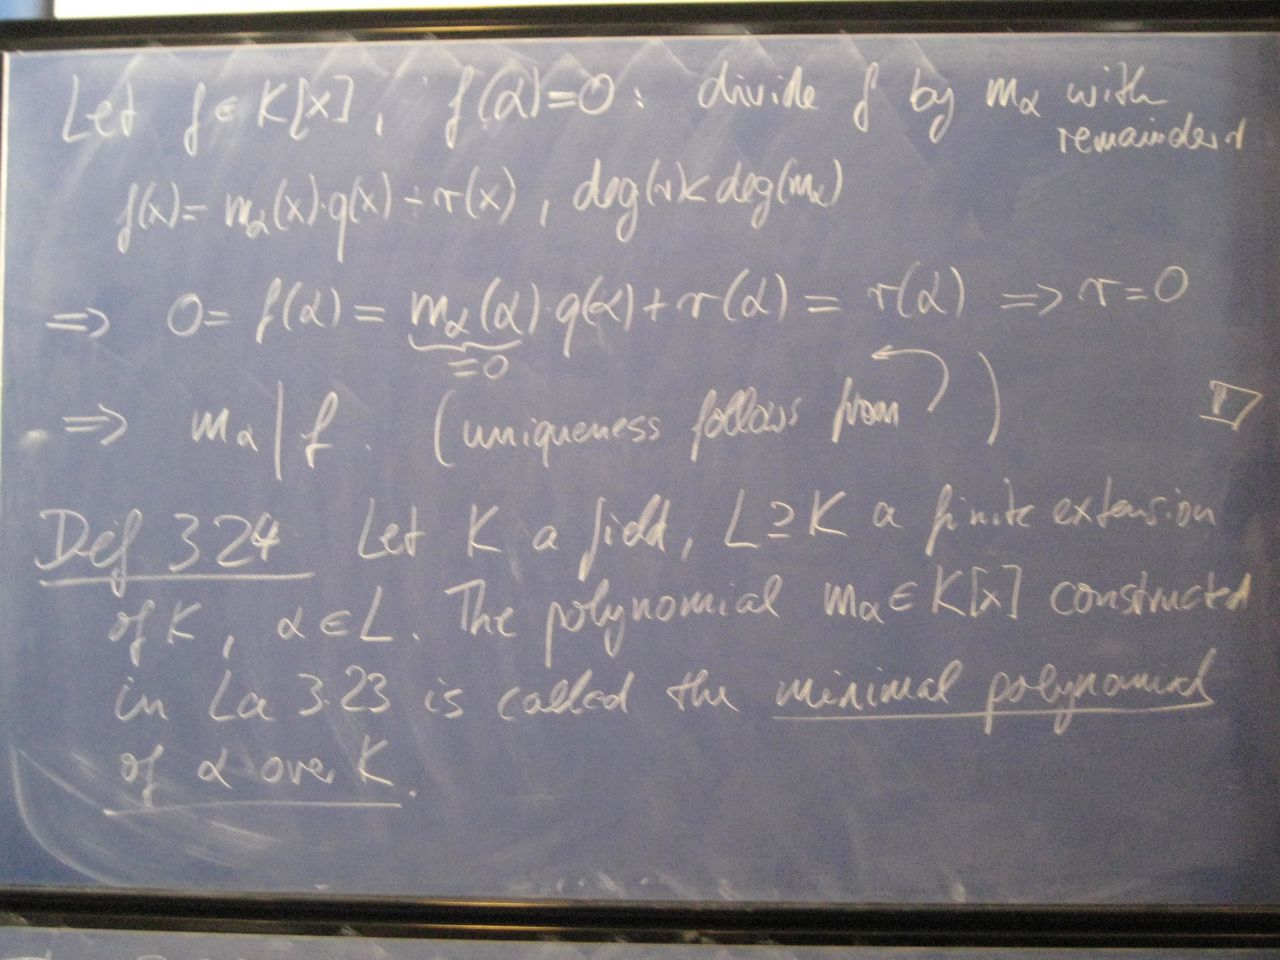 Let f ∈ K[x], f(α)=0: divide f by mα with
remainder r
f(x)= mα(x)·q(x) + r(x), deg(r)< deg(mα)
⇒ 0= f(α) = mα(α)·q(α)+r(α) = r(α) ⇒ r=0
=0
⇒ mα | f. (uniqueness follows from )
Def 3.24 Let K a field, L ⊇ K a finite extension
of K, α ∈ L. The polynomial mα ∈ K[x] constructed
in La 3.23 is called the minimal polynomial
of α over K.